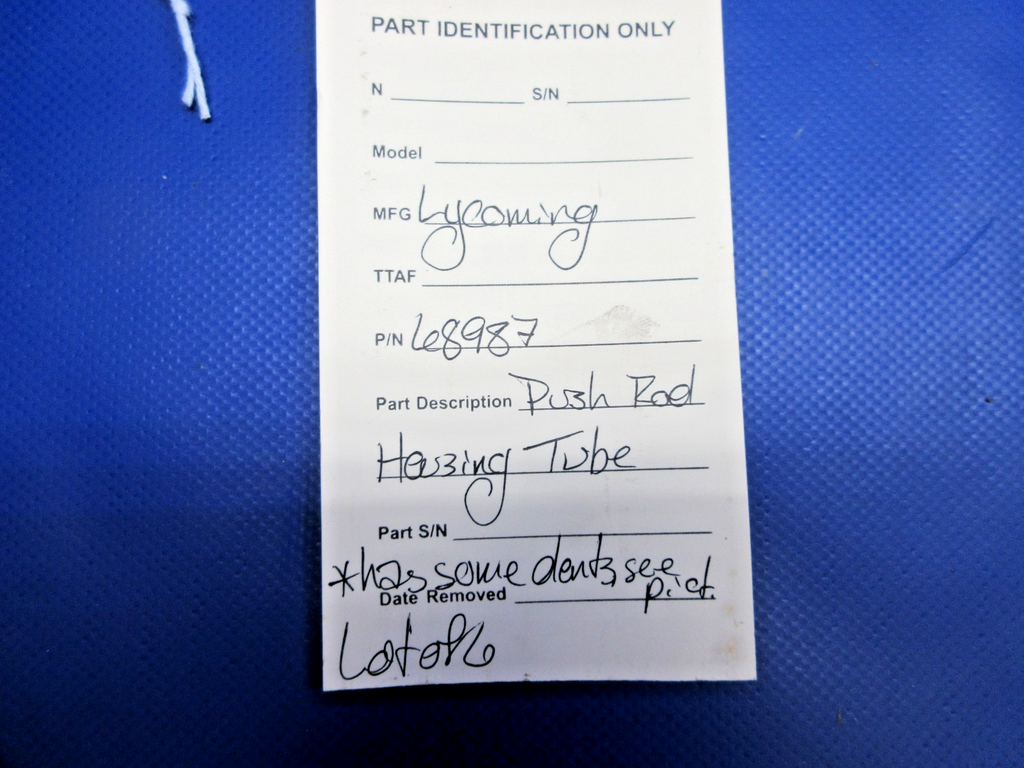 PART IDENTIFICATION ONLY
N S/N
Model
MFG Lycoming
TTAF
P/N 68987
Part Description Push Rod
Housing Tube
Part S/N
*has some dents, see pict.
Date Removed
Lot of 6